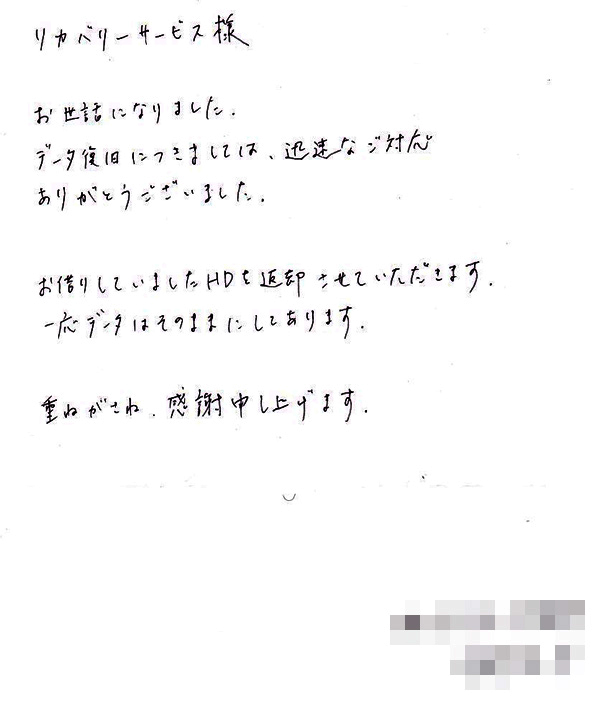 リカバリーサービス様
お世話になりました.
データ復旧につきましては、迅速なご対応
ありがとうございました.
お借りしていましたHDを返却させていただきます.
一応データはそのままにしてあります.
重ねがさね、感謝申し上げます.